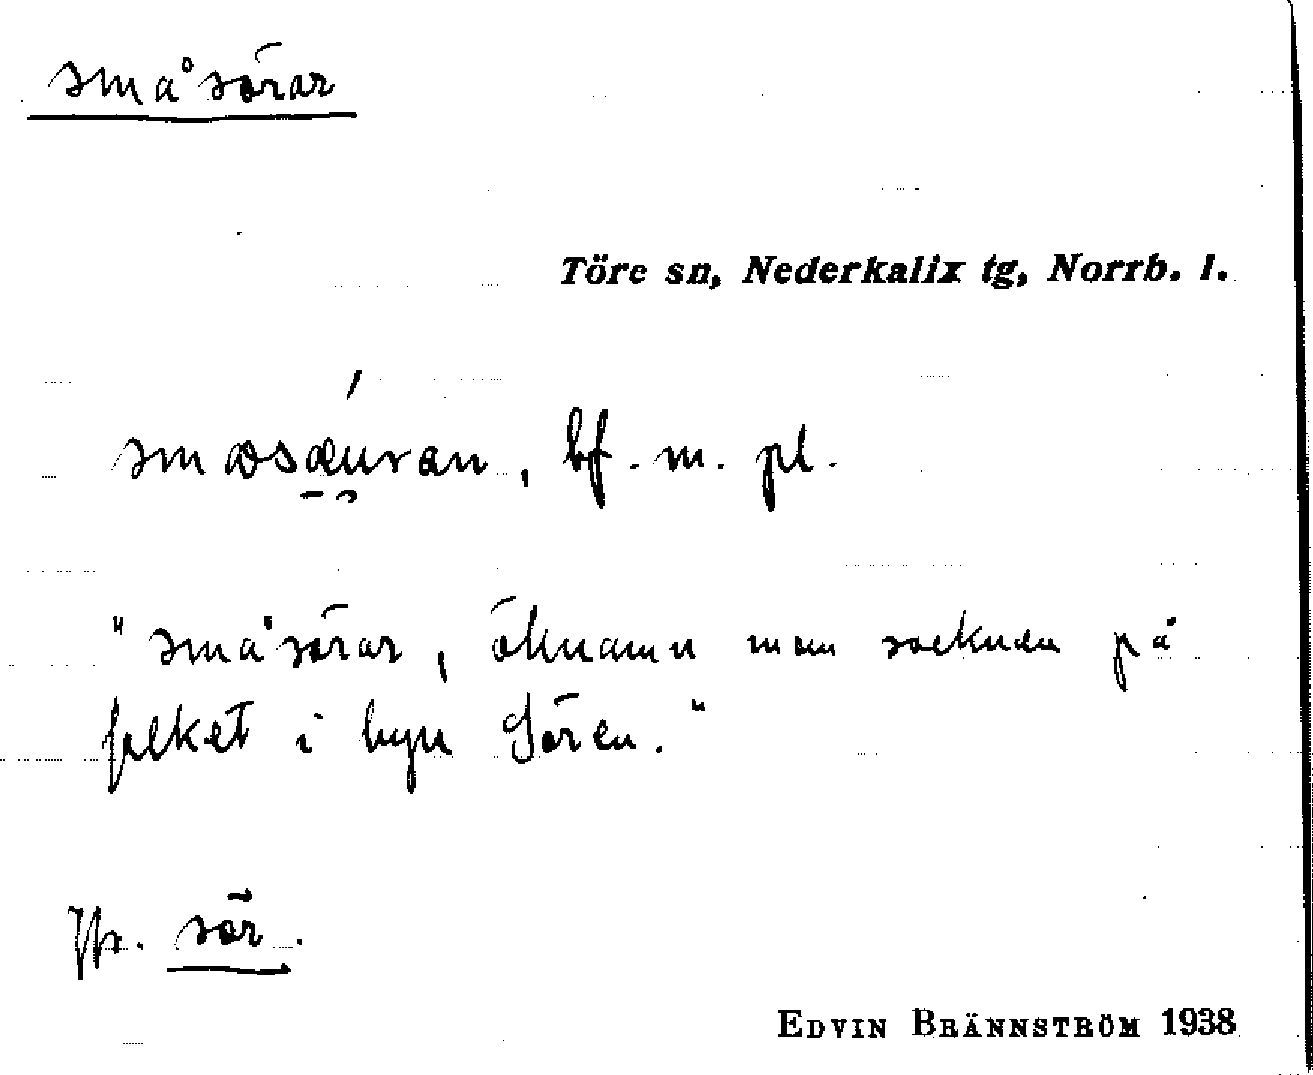 småsörar
Töre sn, Nederkalix tg, Norrb. l.
smɷsæuran, bf. m. pl.
"småsörar, öknamn man soknen på
folket i byn Sören."
Jfr. sör.
EDVIN BRÄNNSTRÖM 1938